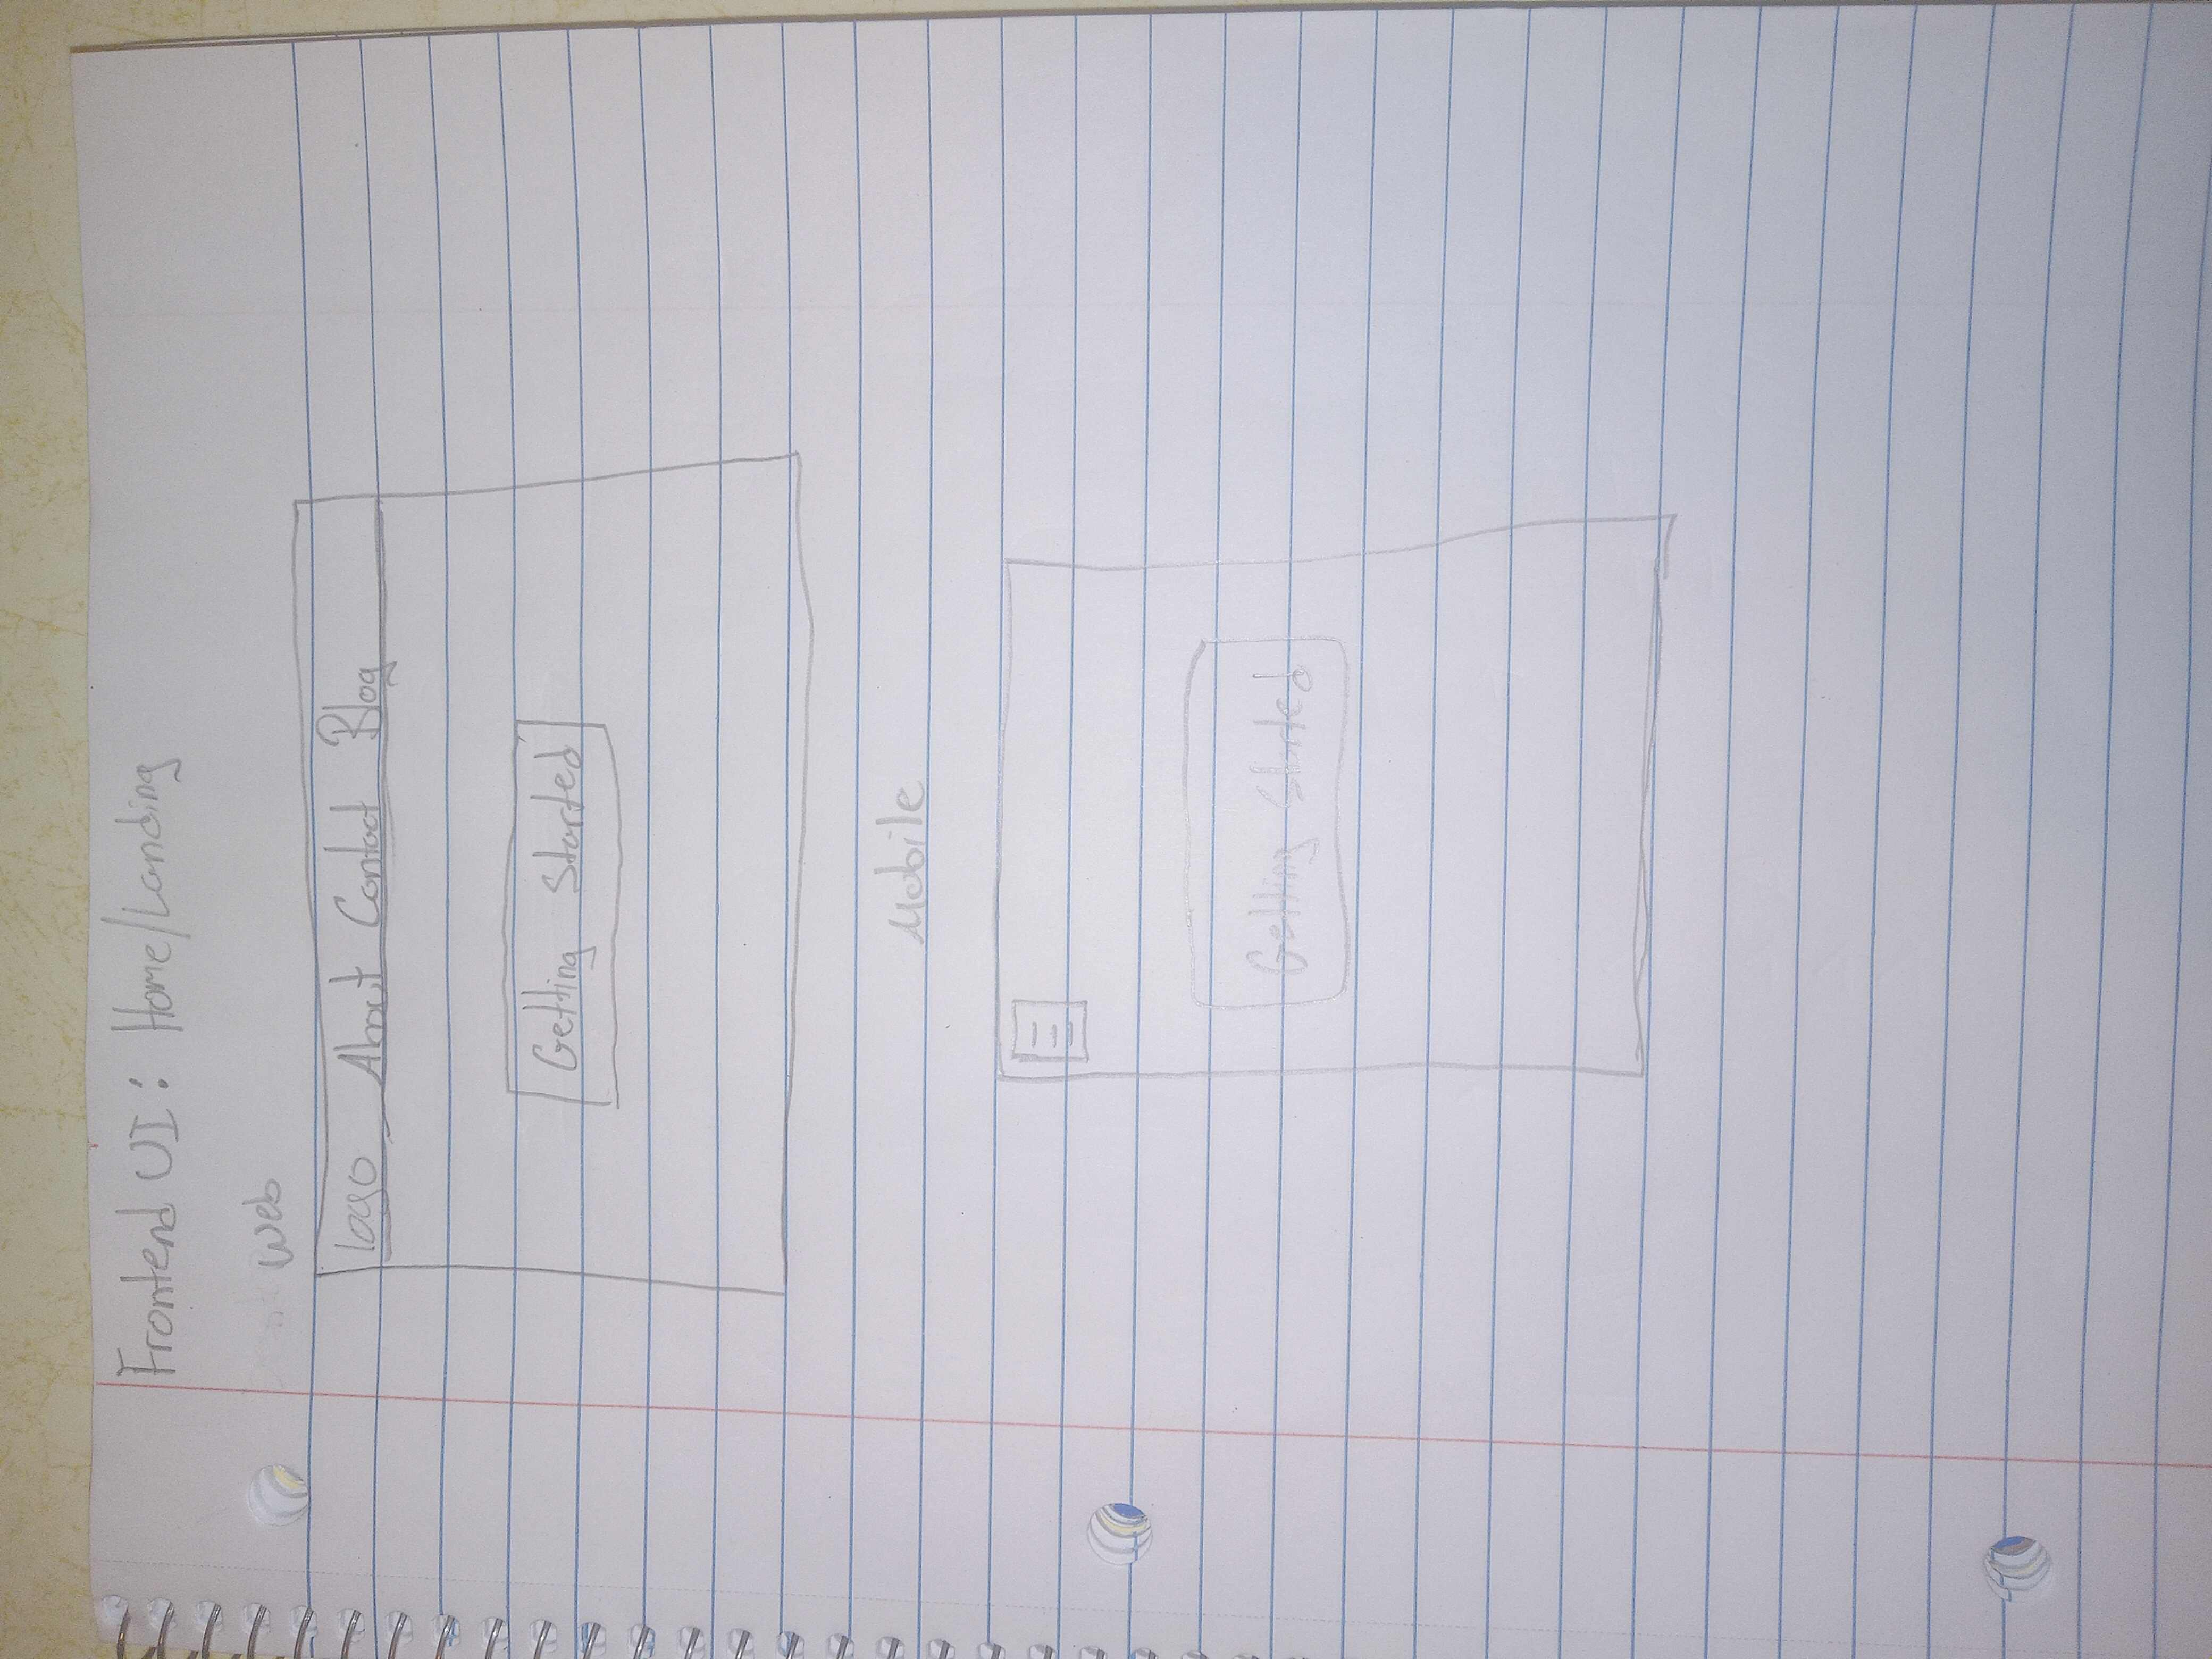 Frontend UI: Home/Landing
Web
logo About Contact Blog
Getting Started
Mobile
Getting Started